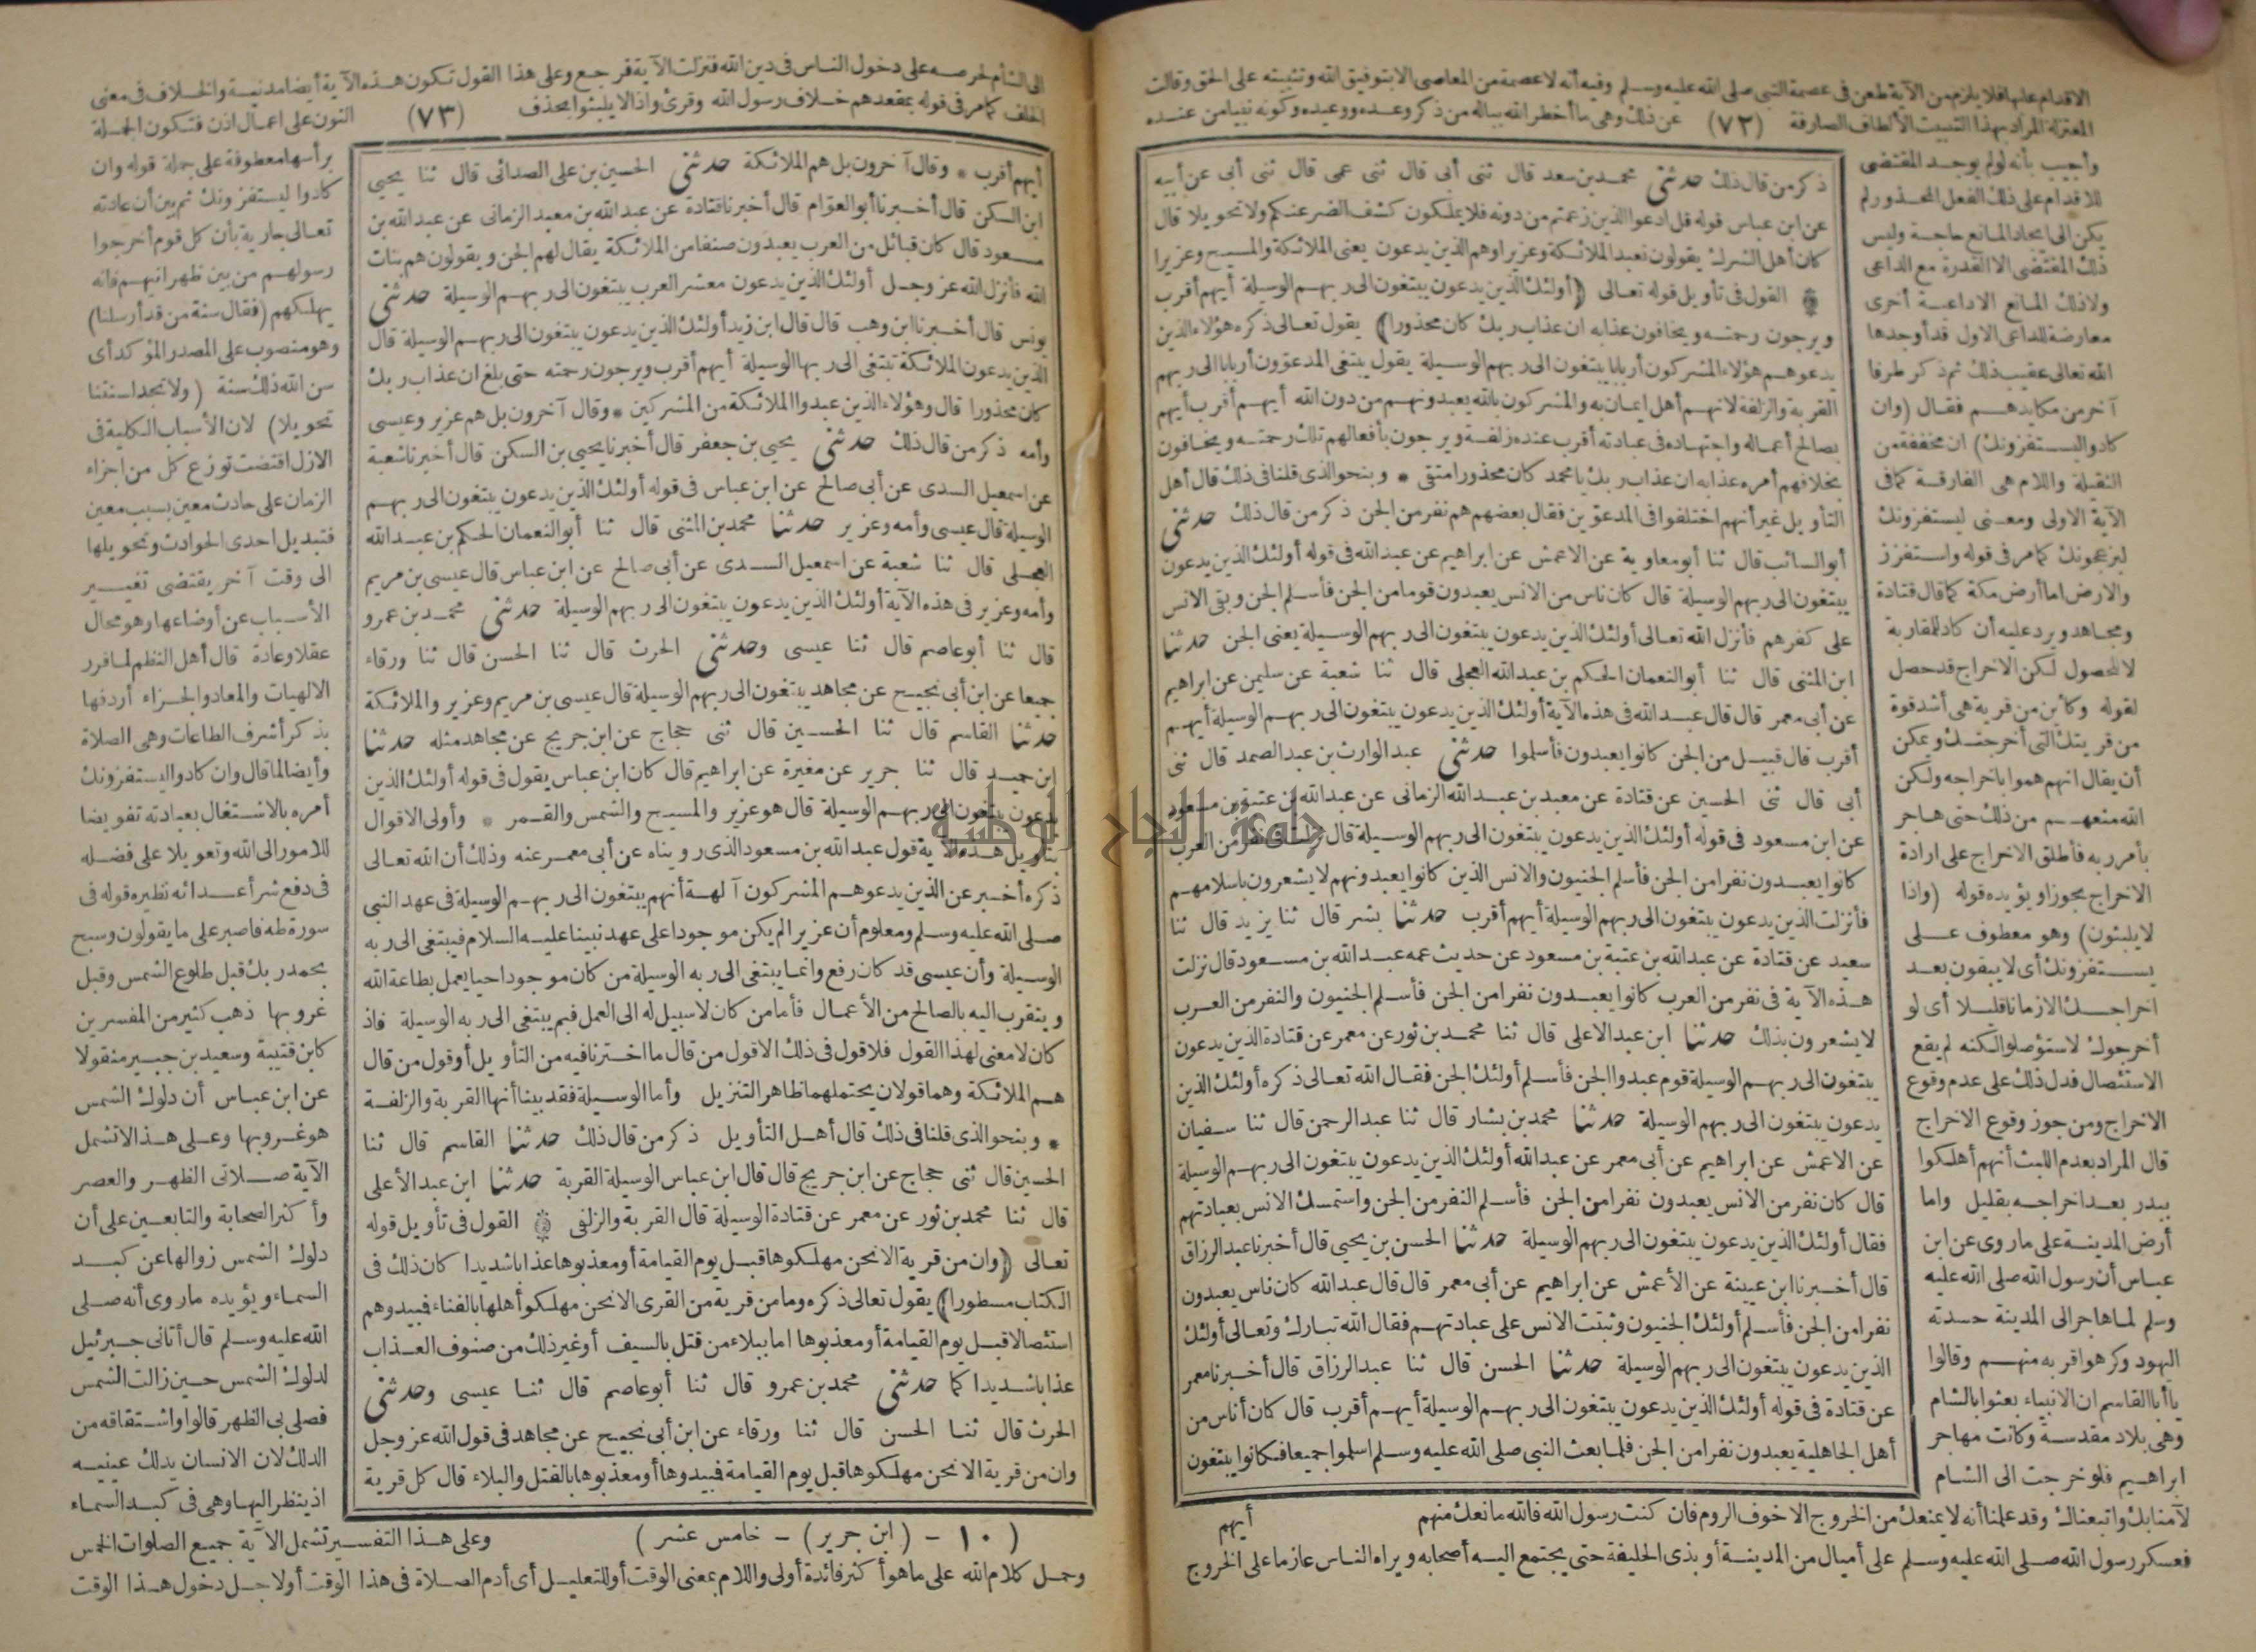 الاقدام عليها فلا يلزم من الآية طعن فى عصمة النبى صلى الله عليه وسلم وفيه أنه لا عصمة من المعاصى الا بتوفيق الله وتثبيته على الحق وقالت
المعتزلة المراد بهذا التثبيت الألطاف الصارفة (٧٢) عن ذلك وهى ما أخطر الله بباله من ذكر وعده ووعيده وكونه نبيا من عنده
وأجيب بأنه لو لم يوجد المقتضى
للاقدام على ذلك الفعل المحذور لم
يكن الى ايجاد المانع حاجة وليس
ذلك المقتضى الا القدرة مع الداعى
ولا ذلك المانع الا داعية أخرى
معارضة للداعى الاول قد أوجدها
الله تعالى عقيب ذلك ثم ذكر طرفا
آخر من مكايدهم فقال (وان
كادوا ليستفزونك) ان مخففة من
الثقيلة واللام هى الفارقة كما فى
الآية الاولى ومعنى ليستفزونك
ليزعجونك كما مر فى قوله واستفزز
والارض اما أرض مكة كما قال قتادة
ومجاهد ويرد عليه أن كاد للمقاربة
لا للحصول لكن الاخراج قد حصل
لقوله وكأين من قرية هى أشد قوة
من قريتك التى أخرجتك ويمكن
أن يقال انهم هموا باخراجه ولكن
الله منعهم من ذلك حتى هاجر
بأمر ربه فأطلق الاخراج على ارادة
الاخراج تجوزا ويؤيده قوله (واذا
لا يلبثون) وهو معطوف على
يستفزونك أى لا يبقون بعد
اخراجك الا زمانا قليلا أى لو
أخرجوك لاستؤصلوا لكنه لم يقع
الاستئصال فدل ذلك على عدم وقوع
الاخراج ومن جوز وقوع الاخراج
قال المراد بعدم اللبث أنهم أهلكوا
ببدر بعد اخراجه بقليل واما
أرض المدينة على ما روى عن ابن
عباس أن رسول الله صلى الله عليه
وسلم لما هاجر الى المدينة حسدته
اليهود وكرهوا قربه منهم وقالوا
يا أبا القاسم ان الانبياء بعثوا بالشام
وهى بلاد مقدسة وكانت مهاجر
ابراهيم فلو خرجت الى الشام
ذكر من قال ذلك حدثنى محمد بن سعد قال ثنى أبى قال ثنى عمى قال ثنى أبى عن أبيه
عن ابن عباس قوله قل ادعوا الذين زعمتم من دونه فلا يملكون كشف الضر عنكم ولا تحويلا قال
كان أهل الشرك يقولون نعبد الملائكة وعزيرا وهم الذين يدعون يعنى الملائكة والمسيح وعزيرا
القول فى تأويل قوله تعالى (أولئك الذين يدعون يبتغون الى ربهم الوسيلة أيهم أقرب
ويرجون رحمته ويخافون عذابه ان عذاب ربك كان محذورا) يقول تعالى ذكره هؤلاء الذين
يدعوهم هؤلاء المشركون أربابا يبتغون الى ربهم الوسيلة يقول يبتغى المدعوّون أربابا الى ربهم
القربة والزلفة لانهم أهل ايمان به والمشركون بالله يعبدونهم من دون الله أيهم أقرب أيهم
بصالح أعماله واجتهاده فى عبادته أقرب عنده زلفة ويرجون بأفعالهم تلك رحمته ويخافون
بخلافهم أمره عذابه ان عذاب ربك يا محمد كان محذورا متقى * وبنحو الذى قلنا فى ذلك قال أهل
التأويل غير أنهم اختلفوا فى المدعوّين فقال بعضهم هم نفر من الجن ذكر من قال ذلك حدثنى
أبو السائب قال ثنا أبو معاوية عن الاعمش عن ابراهيم عن عبد الله فى قوله أولئك الذين يدعون
يبتغون الى ربهم الوسيلة قال كان ناس من الانس يعبدون قوما من الجن فأسلم الجن وبقى الانس
على كفرهم فأنزل الله تعالى أولئك الذين يدعون يبتغون الى ربهم الوسيلة يعنى الجن حدثنا
ابن المثنى قال ثنا أبو النعمان الحكم بن عبد الله العجلى قال ثنا شعبة عن سليمن عن ابراهيم
عن أبى معمر قال قال عبد الله فى هذه الآية أولئك الذين يدعون يبتغون الى ربهم الوسيلة أيهم
أقرب قال قبيل من الجن كانوا يعبدون فأسلموا حدثنى عبد الوارث بن عبد الصمد قال ثنى
أبى قال ثنى الحسين عن قتادة عن معبد بن عبد الله الزمانى عن عبد الله بن عتبة بن مسعود
عن ابن مسعود فى قوله أولئك الذين يدعون يبتغون الى ربهم الوسيلة قال نزلت فى نفر من العرب
كانوا يعبدون نفرا من الجن فأسلم الجنيون والانس الذين كانوا يعبدونهم لا يشعرون باسلامهم
فأنزلت الذين يدعون يبتغون الى ربهم الوسيلة أيهم أقرب حدثنا بشر قال ثنا يزيد قال ثنا
سعيد عن قتادة عن عبد الله بن عتبة بن مسعود عن حديث عمه عبد الله بن مسعود قال نزلت
هذه الآية فى نفر من العرب كانوا يعبدون نفرا من الجن فأسلم الجنيون والنفر من العرب
لا يشعرون بذلك حدثنا ابن عبد الاعلى قال ثنا محمد بن ثور عن معمر عن قتادة الذين يدعون
يبتغون الى ربهم الوسيلة قوم عبدوا الجن فأسلم أولئك الجن فقال الله تعالى ذكره أولئك الذين
يدعون يبتغون الى ربهم الوسيلة حدثنا محمد بن بشار قال ثنا عبد الرحمن قال ثنا سفيان
عن الاعمش عن ابراهيم عن أبى معمر عن عبد الله أولئك الذين يدعون يبتغون الى ربهم الوسيلة
قال كان نفر من الانس يعبدون نفرا من الجن فأسلم النفر من الجن واستمسك الانس بعبادتهم
فقال أولئك الذين يدعون يبتغون الى ربهم الوسيلة حدثنا الحسن بن يحيى قال أخبرنا عبد الرزاق
قال أخبرنا ابن عيينة عن الأعمش عن ابراهيم عن أبى معمر قال قال عبد الله كان ناس يعبدون
نفرا من الجن فأسلم أولئك الجنيون وثبتت الانس على عبادتهم فقال الله تبارك وتعالى أولئك
الذين يدعون يبتغون الى ربهم الوسيلة حدثنا الحسن قال ثنا عبد الرزاق قال أخبرنا معمر
عن قتادة فى قوله أولئك الذين يدعون يبتغون الى ربهم الوسيلة أيهم أقرب قال كان أناس من
أهل الجاهلية يعبدون نفرا من الجن فلما بعث النبى صلى الله عليه وسلم اسلموا جميعا فكانوا يبتغون
أيهم
لآمنا بك واتبعناك وقد علمنا أنه لا يمنعك من الخروج الا خوف الروم فان كنت رسول الله فالله مانعك منهم
فعسكر رسول الله صلى الله عليه وسلم على أميال من المدينة أو بذى الحليفة حتى يجتمع اليه أصحابه ويراه الناس عازما على الخروج
الى الشأم لحرصه على دخول الناس فى دين الله فنزلت الآية فرجع وعلى هذا القول تكون هذه الآية أيضا مدنية والخلاف فى معنى
الخلف كما مر فى قوله بمقعدهم خلاف رسول الله وقرئ واذا لا يلبثوا بحذف (٧٣) النون على اعمال اذن فتكون الجملة
أيهم أقرب * وقال آخرون بل هم الملائكة حدثنى الحسين بن على الصدائى قال ثنا يحيى
ابن السكن قال أخبرنا أبو العوّام قال أخبرنا قتادة عن عبد الله بن معبد الزمانى عن عبد الله بن
مسعود قال كان قبائل من العرب يعبدون صنفا من الملائكة يقال لهم الجن ويقولون هم بنات
الله فأنزل الله عز وجل أولئك الذين يدعون معشر العرب يبتغون الى ربهم الوسيلة حدثنى
يونس قال أخبرنا ابن وهب قال قال ابن زيد أولئك الذين يدعون يبتغون الى ربهم الوسيلة قال
الذين يدعون الملائكة تبتغى الى ربها الوسيلة أيهم أقرب ويرجون رحمته حتى بلغ ان عذاب ربك
كان محذورا قال وهؤلاء الذين عبدوا الملائكة من المشركين * وقال آخرون بل هم عزير وعيسى
وأمه ذكر من قال ذلك حدثنى يحيى بن جعفر قال أخبرنا يحيى بن السكن قال أخبرنا شعبة
عن اسمعيل السدى عن أبى صالح عن ابن عباس فى قوله أولئك الذين يدعون يبتغون الى ربهم
الوسيلة قال عيسى وأمه وعزير حدثنا محمد بن المثنى قال ثنا أبو النعمان الحكم بن عبد الله
العجلى قال ثنا شعبة عن اسمعيل السدى عن أبى صالح عن ابن عباس قال عيسى بن مريم
وأمه وعزير فى هذه الآية أولئك الذين يدعون يبتغون الى ربهم الوسيلة حدثنى محمد بن عمرو
قال ثنا أبو عاصم قال ثنا عيسى وحدثنى الحرث قال ثنا الحسن قال ثنا ورقاء
جميعا عن ابن أبى نجيح عن مجاهد يبتغون الى ربهم الوسيلة قال عيسى بن مريم وعزير والملائكة
حدثنا القاسم قال ثنا الحسين قال ثنى حجاج عن ابن جريج عن مجاهد مثله حدثنا
ابن حميد قال ثنا جرير عن مغيرة عن ابراهيم قال كان ابن عباس يقول فى قوله أولئك الذين
يدعون يبتغون الى ربهم الوسيلة قال هو عزير والمسيح والشمس والقمر * وأولى الاقوال
بتأويل هذه الآية قول عبد الله بن مسعود الذى رويناه عن أبى معمر عنه وذلك أن الله تعالى
ذكره أخبر عن الذين يدعوهم المشركون آلهة أنهم يبتغون الى ربهم الوسيلة فى عهد النبى
صلى الله عليه وسلم ومعلوم أن عزيرا لم يكن موجودا على عهد نبينا عليه السلام فيبتغى الى ربه
الوسيلة وأن عيسى قد كان رفع وانما يبتغى الى ربه الوسيلة من كان موجودا حيا يعمل بطاعة الله
ويتقرب اليه بالصالح من الأعمال فأما من كان لا سبيل له الى العمل فبم يبتغى الى ربه الوسيلة فاذ
كان لا معنى لهذا القول فلا قول فى ذلك الا قول من قال ما اخترنا فيه من التأويل أو قول من قال
هم الملائكة وهما قولان يحتملهما ظاهر التنزيل وأما الوسيلة فقد بينا أنها القربة والزلفة
* وبنحو الذى قلنا فى ذلك قال أهل التأويل ذكر من قال ذلك حدثنا القاسم قال ثنا
الحسين قال ثنى حجاج عن ابن جريج قال قال ابن عباس الوسيلة القربة حدثنا ابن عبد الأعلى
قال ثنا محمد بن ثور عن معمر عن قتادة الوسيلة قال القربة والزلفى القول فى تأويل قوله
تعالى (وان من قرية الا نحن مهلكوها قبل يوم القيامة أو معذبوها عذابا شديدا كان ذلك فى
الكتاب مسطورا) يقول تعالى ذكره وما من قرية من القرى الا نحن مهلكو أهلها بالفناء فمبيدوهم
استئصالا قبل يوم القيامة أو معذبوها اما ببلاء من قتل بالسيف أو غير ذلك من صنوف العذاب
عذابا شديدا كما حدثنى محمد بن عمرو قال ثنا أبو عاصم قال ثنا عيسى وحدثنى
الحرث قال ثنا الحسن قال ثنا ورقاء عن ابن أبى نجيح عن مجاهد فى قول الله عز وجل
وان من قرية الا نحن مهلكوها قبل يوم القيامة فمبيدوها أو معذبوها بالقتل والبلاء قال كل قرية
برأسها معطوفة على جملة قوله وان
كادوا ليستفزونك ثم بين أن عادته
تعالى جارية بأن كل قوم أخرجوا
رسولهم من بين ظهرانيهم فانه
يهلكهم (فقال سنة من قد أرسلنا)
وهو منصوب على المصدر المؤكد أى
سن الله ذلك سنة (ولا تجد لسنتنا
تحويلا) لان الأسباب الكلية فى
الازل اقتضت توزع كل من اجزاء
الزمان على حادث معين بسبب معين
فتبديل احدى الحوادث وتحويلها
الى وقت آخر يقتضى تغيير
الأسباب عن أوضاعها وهو محال
عقلا وعادة قال أهل النظم لما قرر
الالهيات والمعاد والجزاء أردفها
بذكر أشرف الطاعات وهى الصلاة
وأيضا لما قال وان كادوا ليستفزونك
أمره بالاشتغال بعبادته تفويضا
للامور الى الله وتعويلا على فضله
فى دفع شر أعدائه نظيره قوله فى
سورة طه فاصبر على ما يقولون وسبح
بحمد ربك قبل طلوع الشمس وقبل
غروبها ذهب كثير من المفسرين
كابن قتيبة وسعيد بن جبير منقولا
عن ابن عباس أن دلوك الشمس
هو غروبها وعلى هذا لا تشمل
الآية صلاتى الظهر والعصر
وأكثر الصحابة والتابعين على أن
دلوك الشمس زوالها عن كبد
السماء ويؤيده ما روى أنه صلى
الله عليه وسلم قال أتانى جبرئيل
لدلوك الشمس حين زالت الشمس
فصلى بى الظهر قالوا واشتقاقه من
الدلك لان الانسان يدلك عينيه
اذ ينظر اليها وهى فى كبد السماء
(١٠ - (ابن جرير) - خامس عشر) وعلى هذا التفسير تشمل الآية جميع الصلوات الخمس
وحمل كلام الله على ما هو أكثر فائدة أولى واللام بمعنى الوقت أو للتعليل أى أدم الصلاة فى هذا الوقت أو لاجل دخول هذا الوقت
جامعة النجاح الوطنية